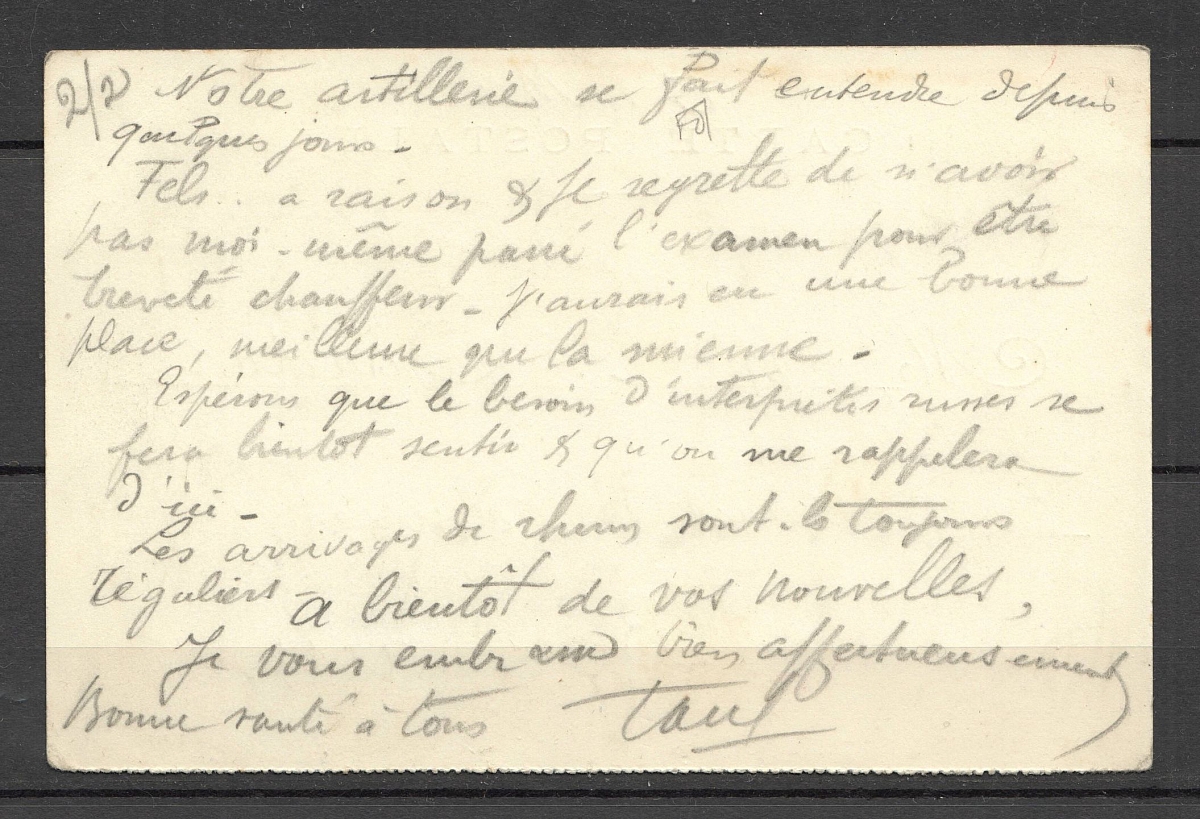 2/2 Notre artillerie se fait entendre depuis
quelques jours -
Fels.. a raison & je regrette de n'avoir
pas moi-même passé l'examen pour être
breveté chauffeur - J'aurais eu une bonne
place, meilleure que la mienne -
Espérons que le besoin d'interprètes russes se
fera bientot sentir & qu'on me rappelera
d'ici -
Les arrivages de rhums sont-ils toujours
réguliers - a bientôt de vos nouvelles,
Je vous embrasse bien affectueusement
Bonne santé à tous Paul